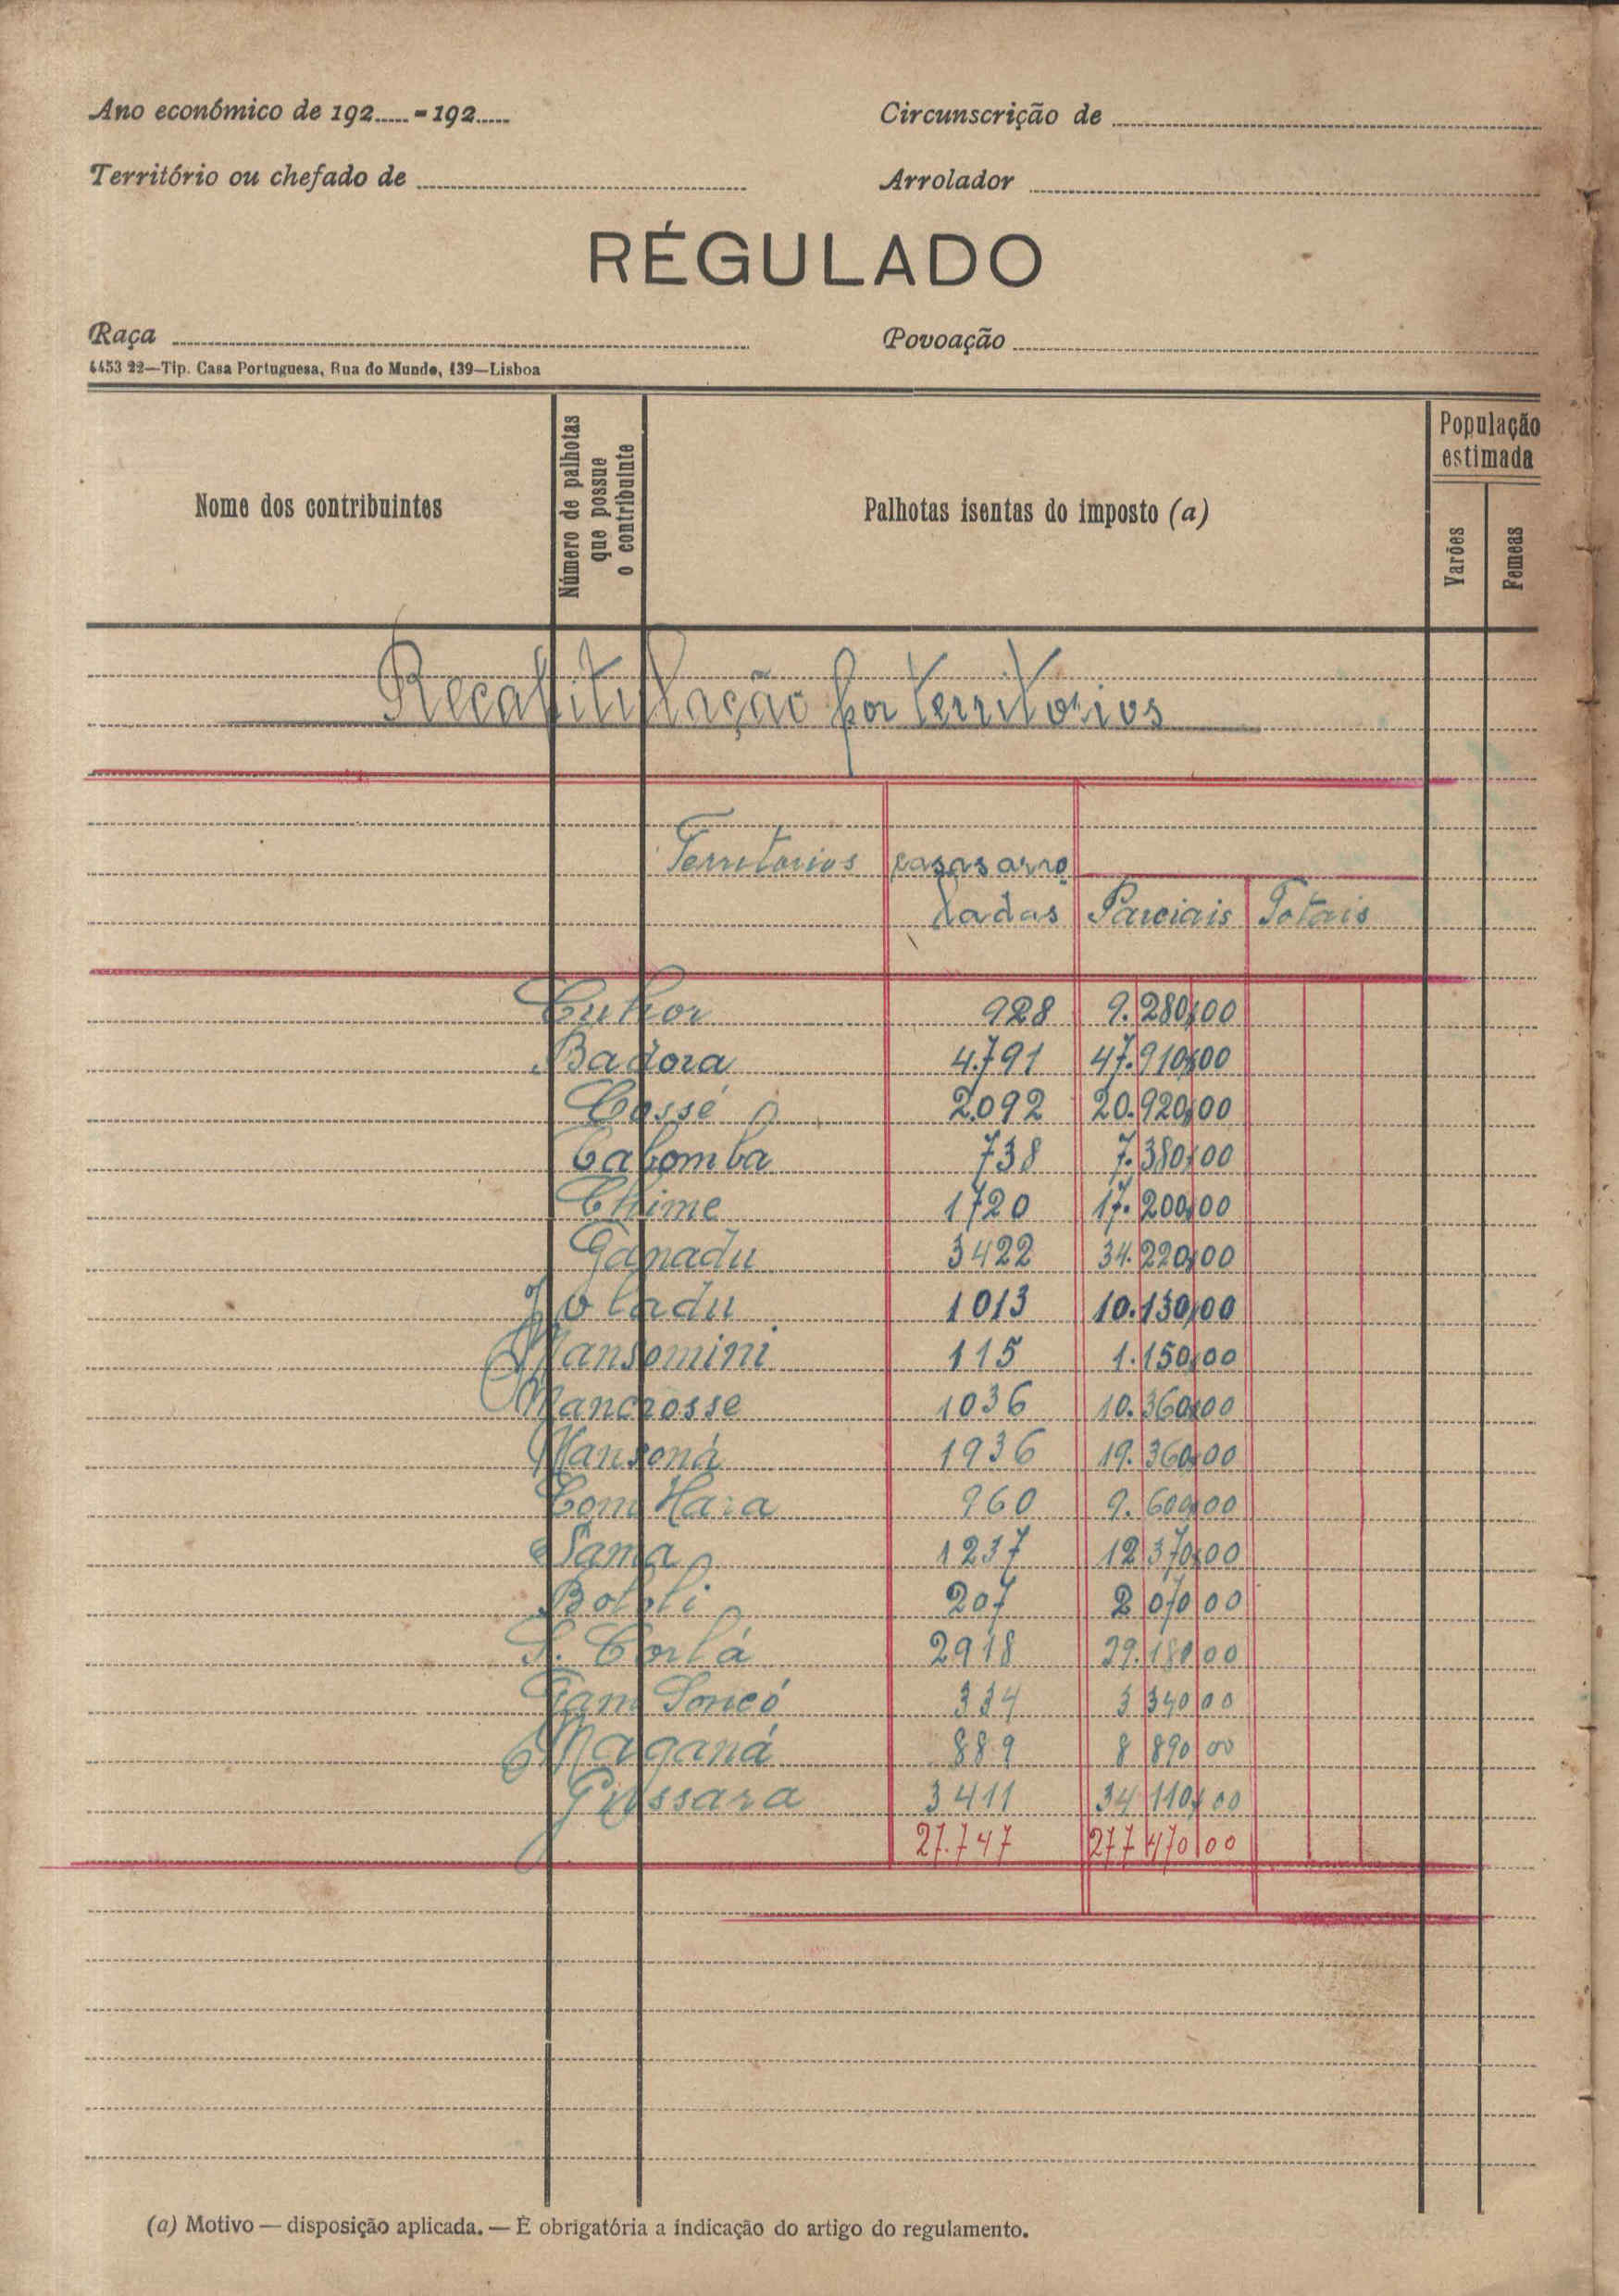 Ano económico de 192..... - 192.....
Circunscrição de
Território ou chefado de
Arrolador
RÉGULADO
Raça
Povoação
4453 22—Tip. Casa Portuguesa, Rua do Mundo, 139—Lisboa
Nome dos contribuintes
Número de palhotas que possue o contribuinte
Palhotas isentas do imposto (a)
População estimada
Varões
Femeas
Recapitulação por territorios
Territorios casas arro
ladas Parciais Totais
Cuhor 928 9.280$00
Badora 4.791 47.910$00
Cossé 2.092 20.920$00
Cabomba 738 7.380$00
Chime 1720 17.200$00
Ganadu 3422 34.220$00
Joladu 1013 10.130$00
Mansomini 115 1.150$00
Mancrosse 1036 10.360$00
Mansoná 1936 19.360$00
960 9.600$00
Sama 1237 12 370$00
207 2 070 00
S. Corlá 2918 29.180 00
Gam Soncó 334 3 340 00
Maganá 889 8 890 00
Gussara 3411 34 110$00
27.747 277 470 00
(a) Motivo — disposição aplicada. — É obrigatória a indicação do artigo do regulamento.